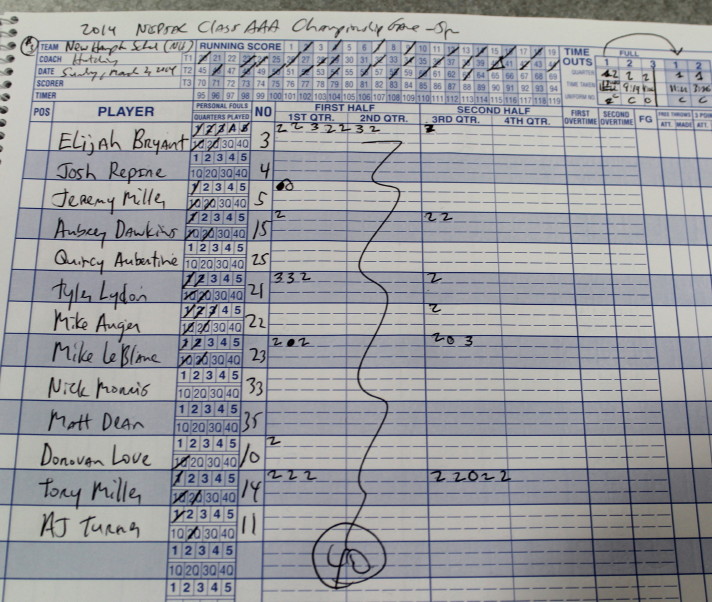 2014 NEPSAC Class AAA Championship Game - 5pm
TEAM New Hampton School (NH) RUNNING SCORE 1 2 3 4 5 6 7 8 9 10 11 12 13 14 15 16 17 18 19 TIME OUTS FULL
COACH Hutchins T1 20 21 22 23 24 25 26 27 28 29 30 31 32 33 34 35 36 37 38 39 40 41 42 43 44 1 2 3 1 2
DATE Sunday, March 2, 2014 T2 45 46 47 48 49 50 51 52 53 54 55 56 57 58 59 60 61 62 63 64 65 66 67 68 69 QUARTER 2 2 1 1
SCORER T3 70 71 72 73 74 75 76 77 78 79 80 81 82 83 84 85 86 87 88 89 90 91 92 93 94 TIME TAKEN
TIMER 95 96 97 98 99 100 101 102 103 104 105 106 107 108 109 110 111 112 113 114 115 116 117 118 119 UNIFORM NO. C O C C
POS PLAYER PERSONAL FOULS QUARTERS PLAYED NO FIRST HALF 1ST QTR. 2ND QTR. SECOND HALF 3RD QTR. 4TH QTR. FIRST OVERTIME SECOND OVERTIME FG FREE THROWS ATT. MADE 3 POINT ATT.
Elijah Bryant 1 2 3 4 5 10 20 30 40 3 2 2 3 2 2 3 2
Josh Repine 1 2 3 4 5 10 20 30 40 4
Jeremy Miller 1 2 3 4 5 10 20 30 40 5
Aubrey Dawkins 1 2 3 4 5 10 20 30 40 15 2 2 2
Quincy Aubertine 1 2 3 4 5 10 20 30 40 25
Tyler Lydon 1 2 3 4 5 10 20 30 40 21 3 3 2 2
Mike Auger 1 2 3 4 5 10 20 30 40 22 2
Mike LeBlanc 1 2 3 4 5 10 20 30 40 23 2 0 2 2 0 3
Nick Morris 1 2 3 4 5 10 20 30 40 33
Matt Dean 1 2 3 4 5 10 20 30 40 35
Donovan Love 1 2 3 4 5 10 20 30 40 10 2
Tory Miller 1 2 3 4 5 10 20 30 40 14 2 2 2 2 2 0 2 2
AJ Turner 1 2 3 4 5 10 20 30 40 11
1 2 3 4 5 10 20 30 40 40
1 2 3 4 5